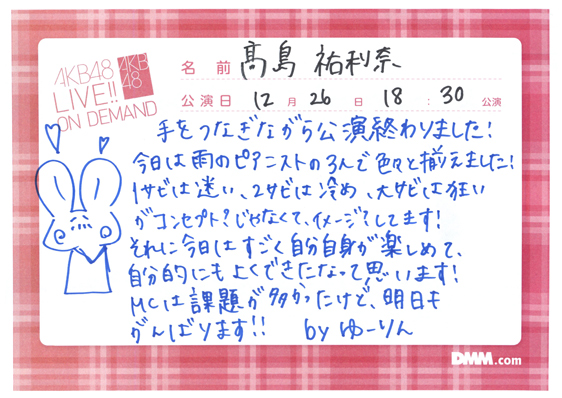 AKB48
LIVE!!
ON DEMAND
AKB
48
名前 髙島 祐利奈
公演日 12月26日 18:30公演
手をつなぎながら公演終わりました!
今日は雨のピアニストの3人で色々と揃えました!
1サビは迷い、2サビは冷め、大サビは狂い
がコンセプト?じゃなくて、イメージ?してます!
それに今日はすごく自分自身が楽しめて、
自分的にもよくできたなって思います!
MCは課題が多かったけど、明日も
がんばります!! by ゆーりん
DMM.com